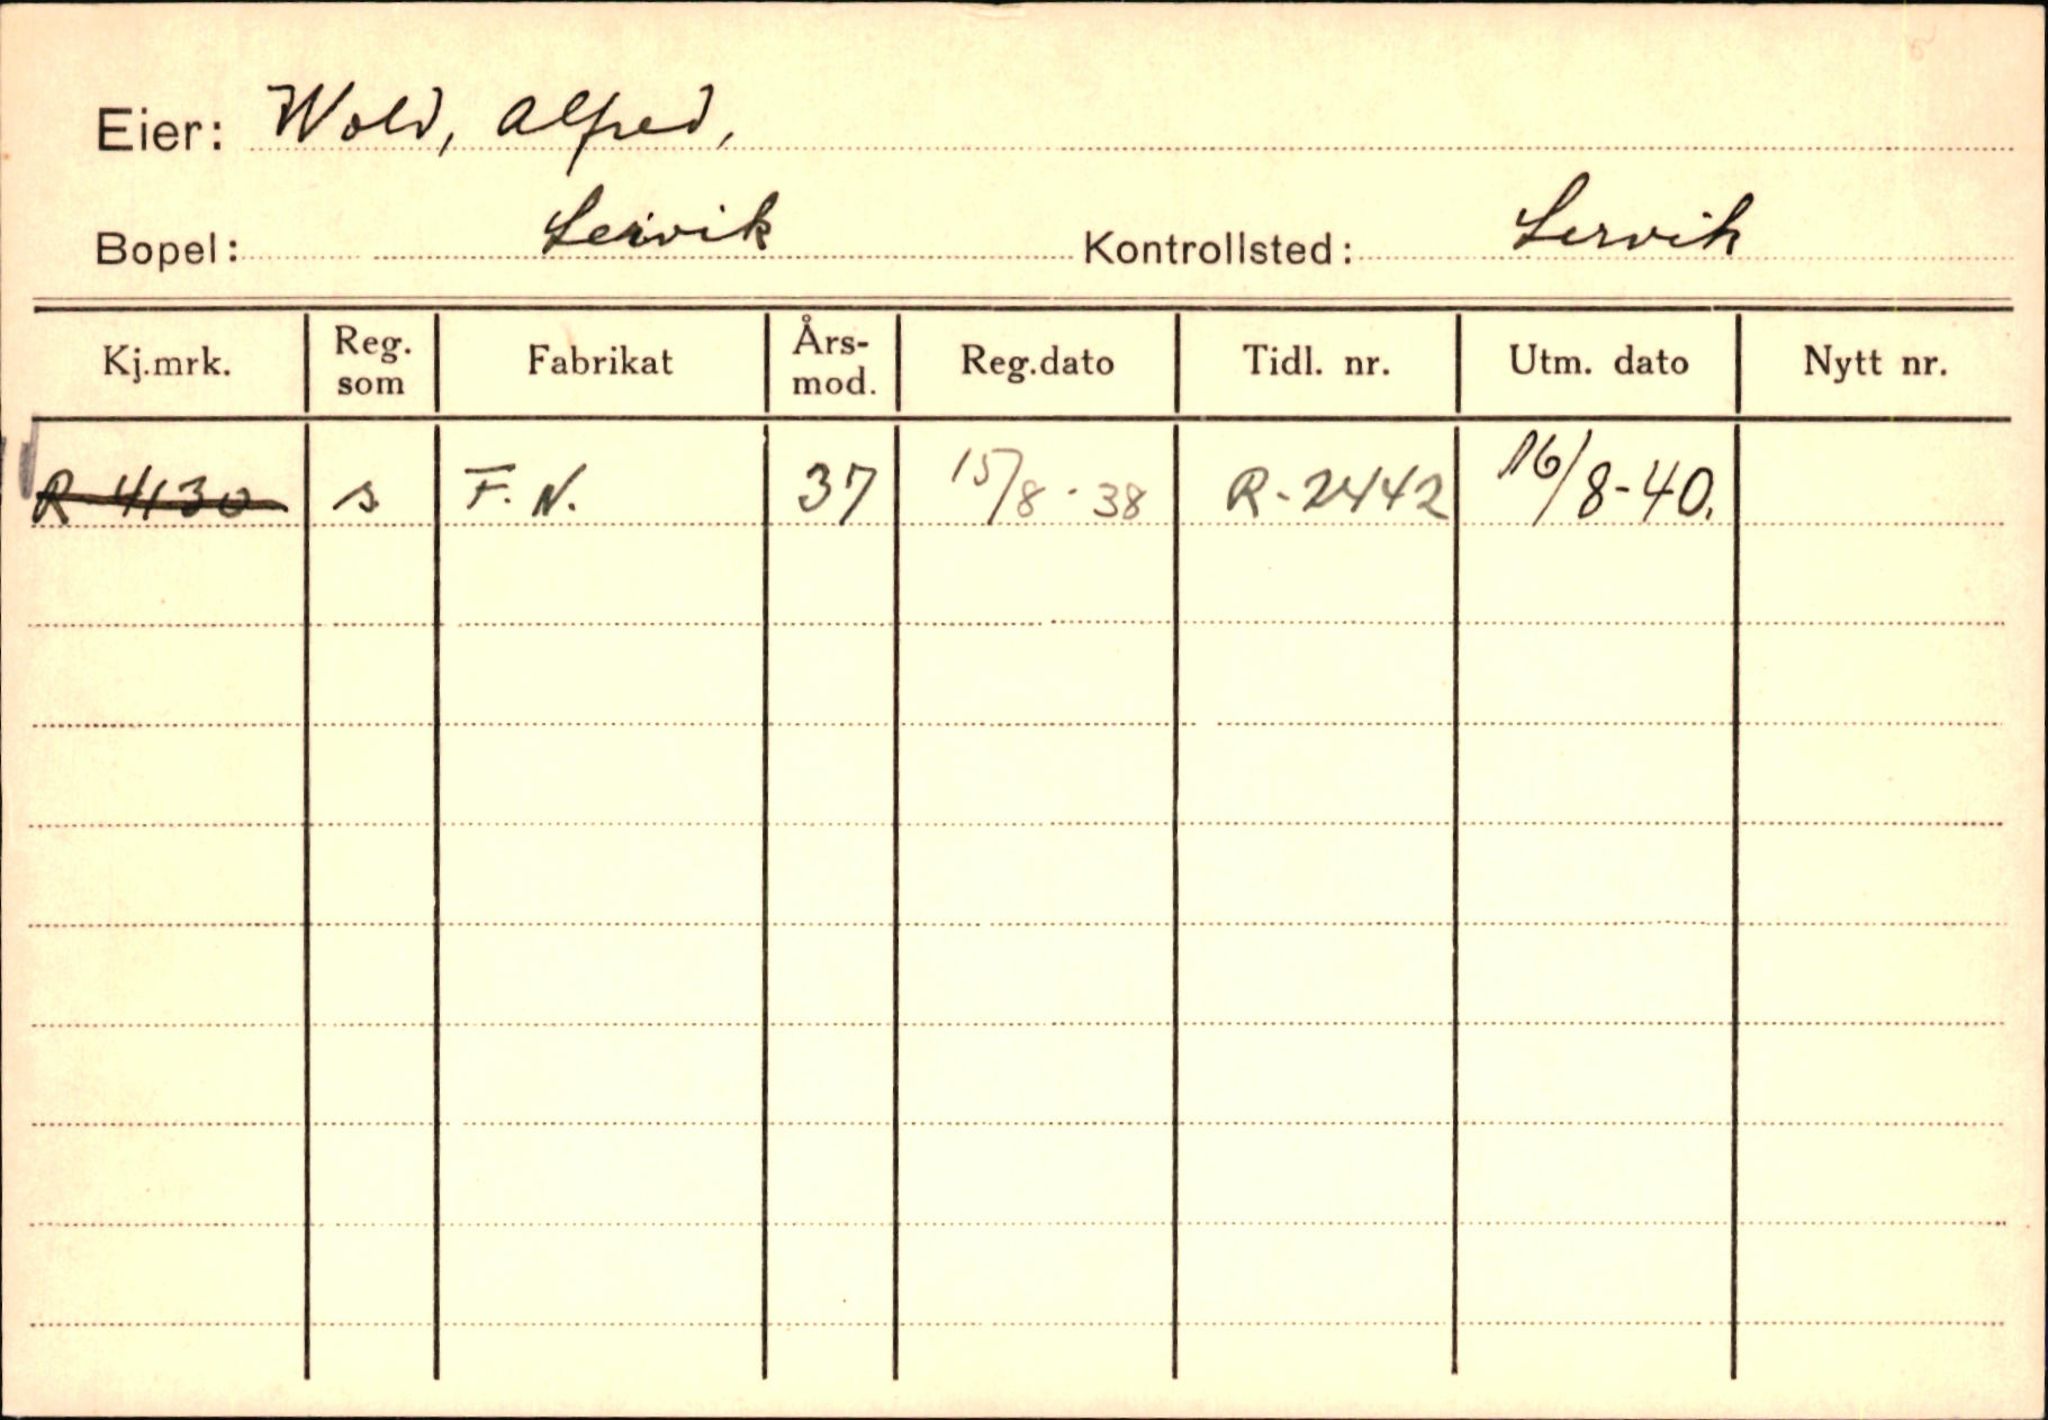 Eier: Wold, Alfred,
Bopel: Leirvik Kontrollsted: Lervik
Kj.mrk. Reg. som Fabrikat Års-mod. Reg.dato Tidl. nr. Utm. dato Nytt nr.
R 4130 s F. N. 37 15/8 - 38 R - 2442 16/8-40.